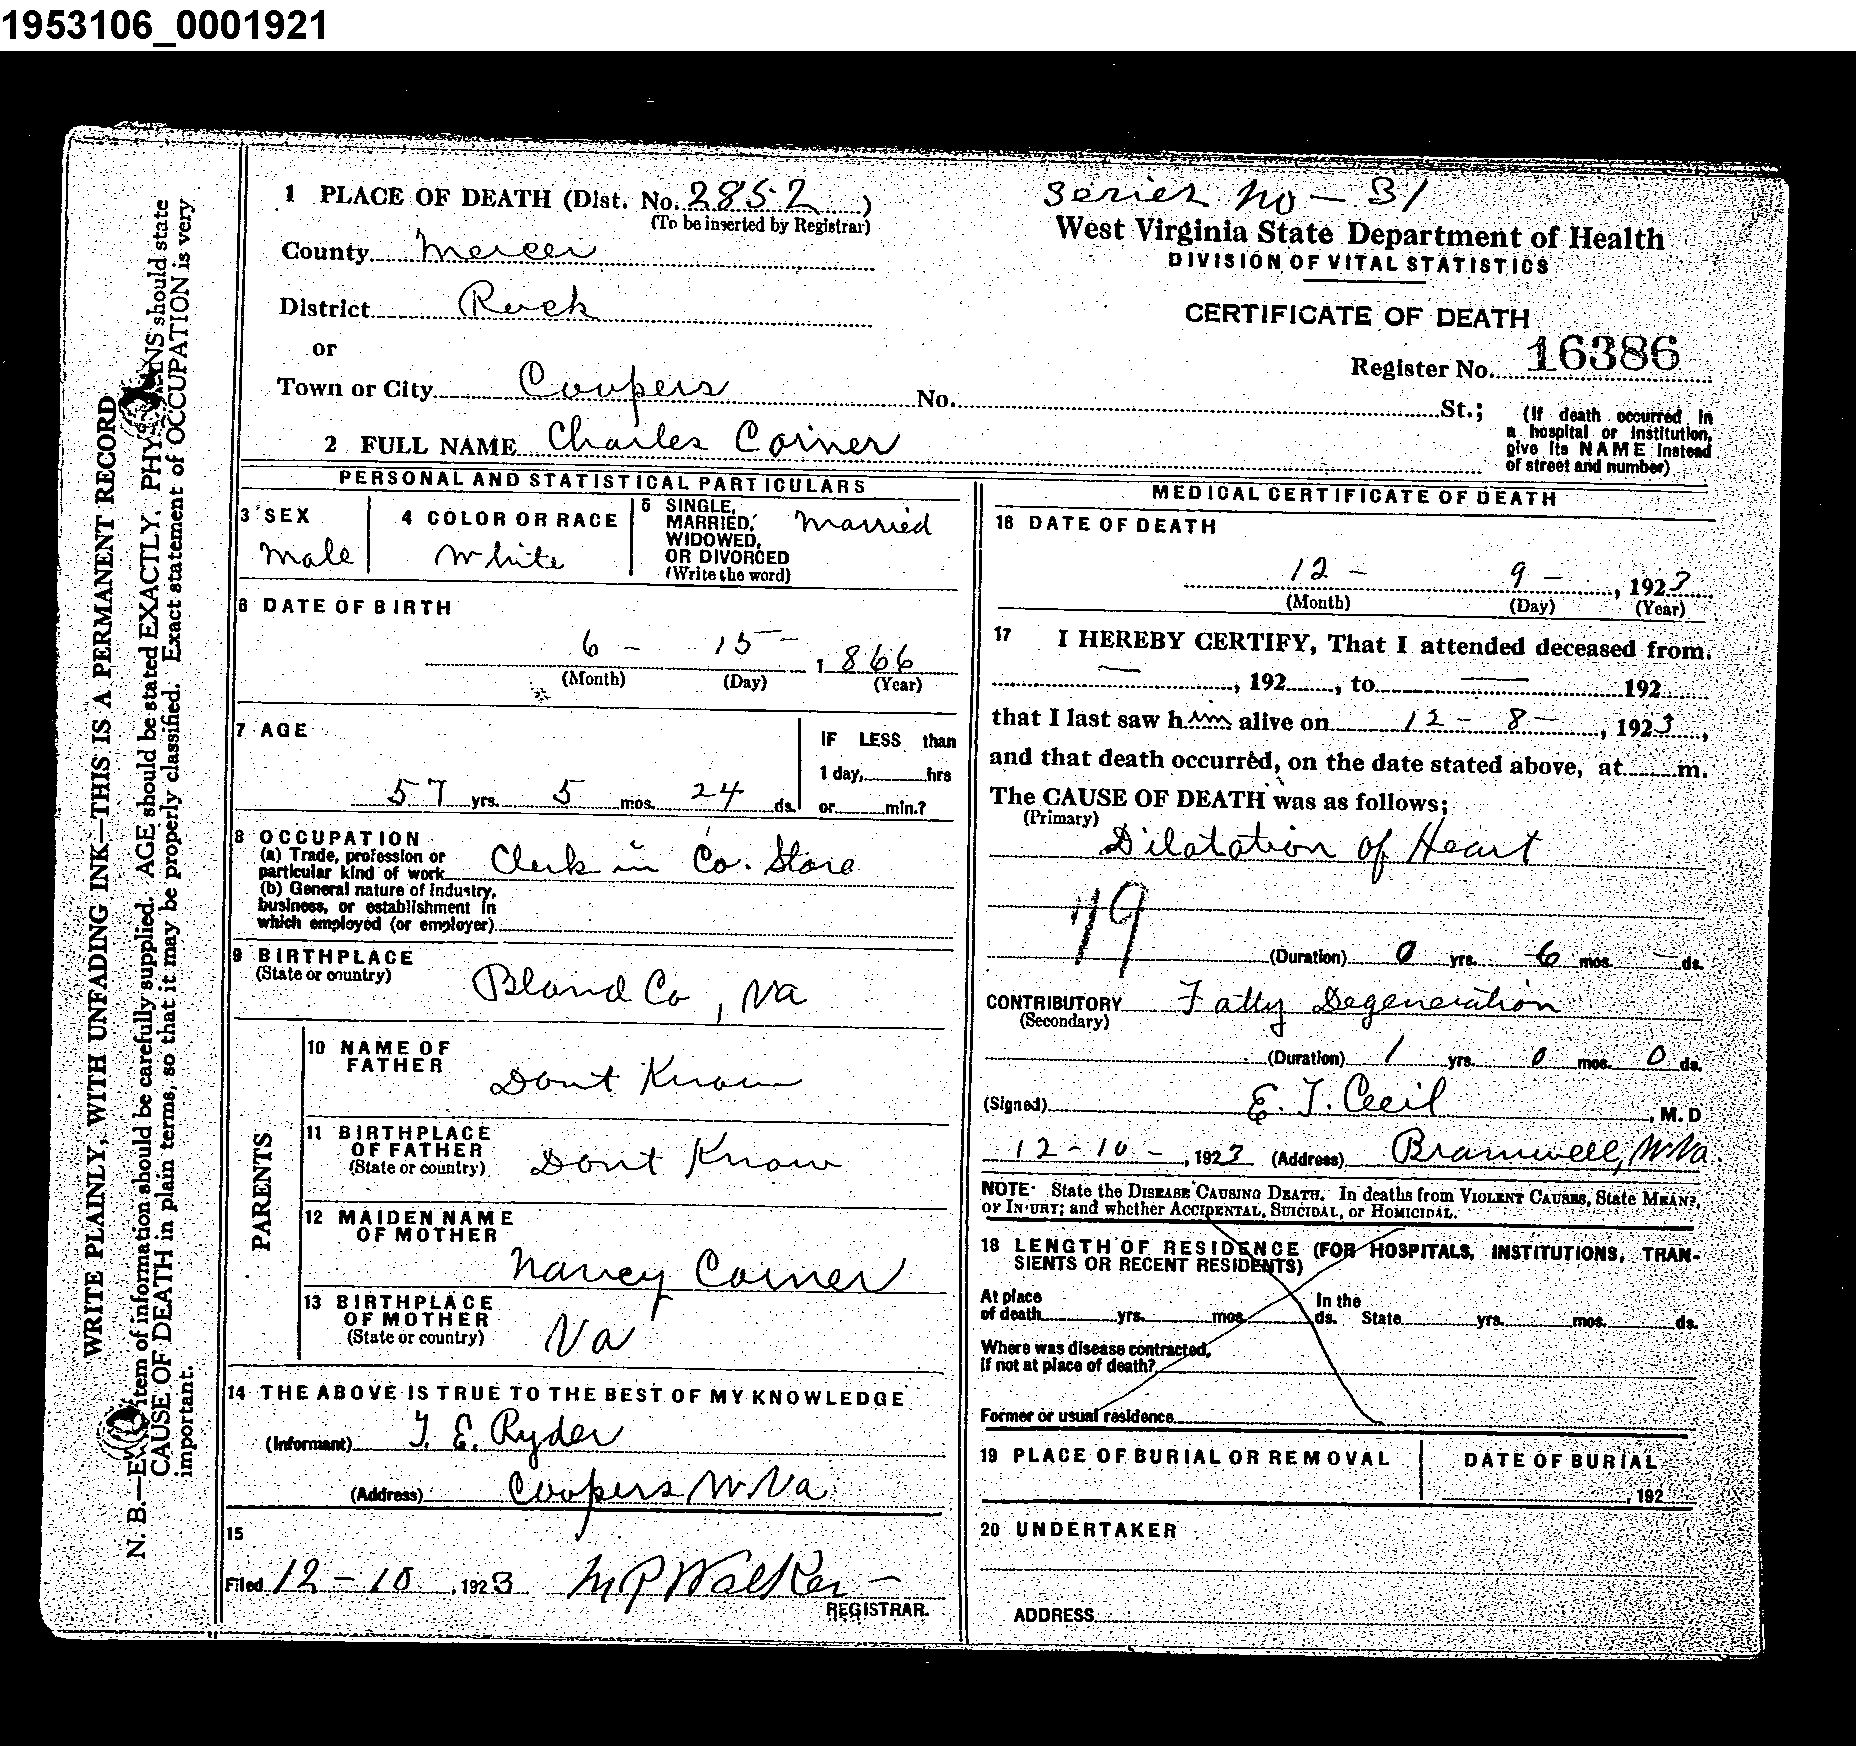 1953106_0001921
WRITE PLAINLY, WITH UNFADING INK—THIS IS A PERMANENT RECORD
N. B.—Every item of information should be carefully supplied. AGE should be stated EXACTLY. PHYSICIANS should state
CAUSE OF DEATH in plain terms, so that it may be properly classified. Exact statement of OCCUPATION is very
important.
1 PLACE OF DEATH (Dist. No. 2852)
(To be inserted by Registrar)
County Mercer
District Rock
or
Town or City Coopers No. St.;
2 FULL NAME Charles Corner
Series No - 31
West Virginia State Department of Health
DIVISION OF VITAL STATISTICS
CERTIFICATE OF DEATH
Register No. 16386
(If death occurred in
a hospital or institution,
give its NAME instead
of street and number)
PERSONAL AND STATISTICAL PARTICULARS
3 SEX
Male
4 COLOR OR RACE
White
5 SINGLE,
MARRIED,
WIDOWED,
OR DIVORCED
(Write the word)
Married
6 DATE OF BIRTH
6 - 15 - 1 866
(Month) (Day) (Year)
7 AGE
57 yrs. 5 mos. 24 ds.
IF LESS than
1 day, hrs
or min.?
8 OCCUPATION
(a) Trade, profession or
particular kind of work Clerk in Co. Store
(b) General nature of Industry,
business, or establishment in
which employed (or employer)
9 BIRTHPLACE
(State or country) Bland Co, Va
PARENTS
10 NAME OF
FATHER Dont Know
11 BIRTHPLACE
OF FATHER
(State or country) Dont Know
12 MAIDEN NAME
OF MOTHER
Nancy Corner
13 BIRTHPLACE
OF MOTHER
(State or country) Va
14 THE ABOVE IS TRUE TO THE BEST OF MY KNOWLEDGE
(Informant) T. E. Ryder
(Address) Coopers W Va
15
Filed 12 - 10, 1923 M P Walker -
REGISTRAR.
MEDICAL CERTIFICATE OF DEATH
16 DATE OF DEATH
12 - 9 - , 1923
(Month) (Day) (Year)
17 I HEREBY CERTIFY, That I attended deceased from
— , 192 , to — 192
that I last saw him alive on 12 - 8 - , 1923,
and that death occurred, on the date stated above, at m.
The CAUSE OF DEATH was as follows;
(Primary)
Dilatation of Heart
(Duration) 0 yrs. 6 mos. - ds.
CONTRIBUTORY Fatty Degeneration
(Secondary)
(Duration) 1 yrs. 0 mos. 0 ds.
(Signed) E. T. Cecil , M. D
12 - 10 - , 1923 (Address) Bramwell, W Va.
NOTE- State the DISEASE CAUSING DEATH. In deaths from VIOLENT CAUSES, State MEANS
OF INJURY; and whether ACCIDENTAL, SUICIDAL, or HOMICIDAL.
18 LENGTH OF RESIDENCE (FOR HOSPITALS, INSTITUTIONS, TRAN-
SIENTS OR RECENT RESIDENTS)
At place
of death yrs. mos. ds.
In the
State yrs. mos. ds.
Where was disease contracted,
If not at place of death?
Former or usual residence
19 PLACE OF BURIAL OR REMOVAL
DATE OF BURIAL
, 192
20 UNDERTAKER
ADDRESS